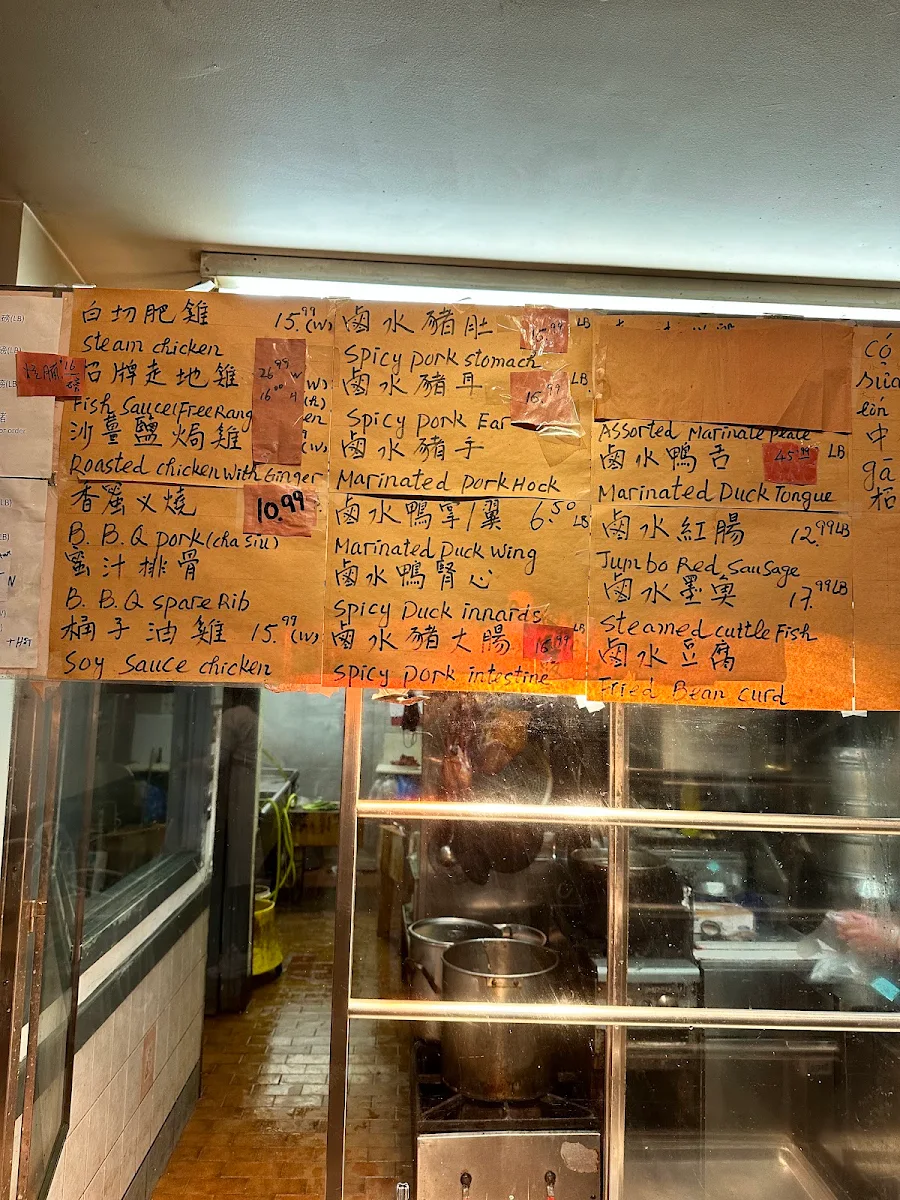 白切肥雞 15.99 (W)
Steam chicken
招牌走地雞 26.99 W
16.00 H
Fish Sauce (Free Rang
沙薑鹽焗雞
Roasted chicken with Ginger
香蜜叉燒 10.99
B. B. Q pork (cha siu)
蜜汁排骨
B. B. Q spare Rib
桶子油雞 15.99 (W)
Soy Sauce chicken
滷水豬肚 LB
Spicy pork stomach
滷水豬耳 16.99 LB
Spicy pork Ear
滷水豬手
Marinated pork Hock
滷水鴨掌/翼 6.50 LB
Marinated Duck wing
滷水鴨腎心
Spicy Duck innards
滷水豬大腸
Spicy pork intestine
Assorted Marinate plate
滷水鴨舌 45.99 LB
Marinated Duck Tongue
滷水紅腸 12.99 LB
Jumbo Red Sausage
滷水墨魚 17.99 LB
Steamed cuttle Fish
滷水豆腐
Fried Bean curd
có
sủa
lòn
中
gà